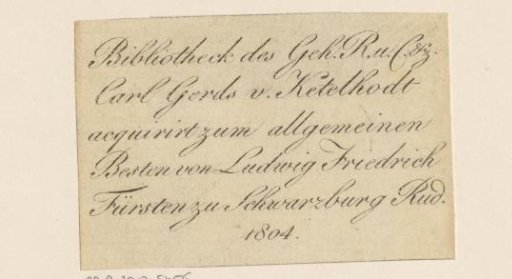 Bibliotheck des Geh. R. u. C. &z.
Carl Gerds v. Ketelhodt
acquirirt zum allgemeinen
Besten von Ludwig Friedrich
Fürsten zu Schwarzburg Rud.
1804.